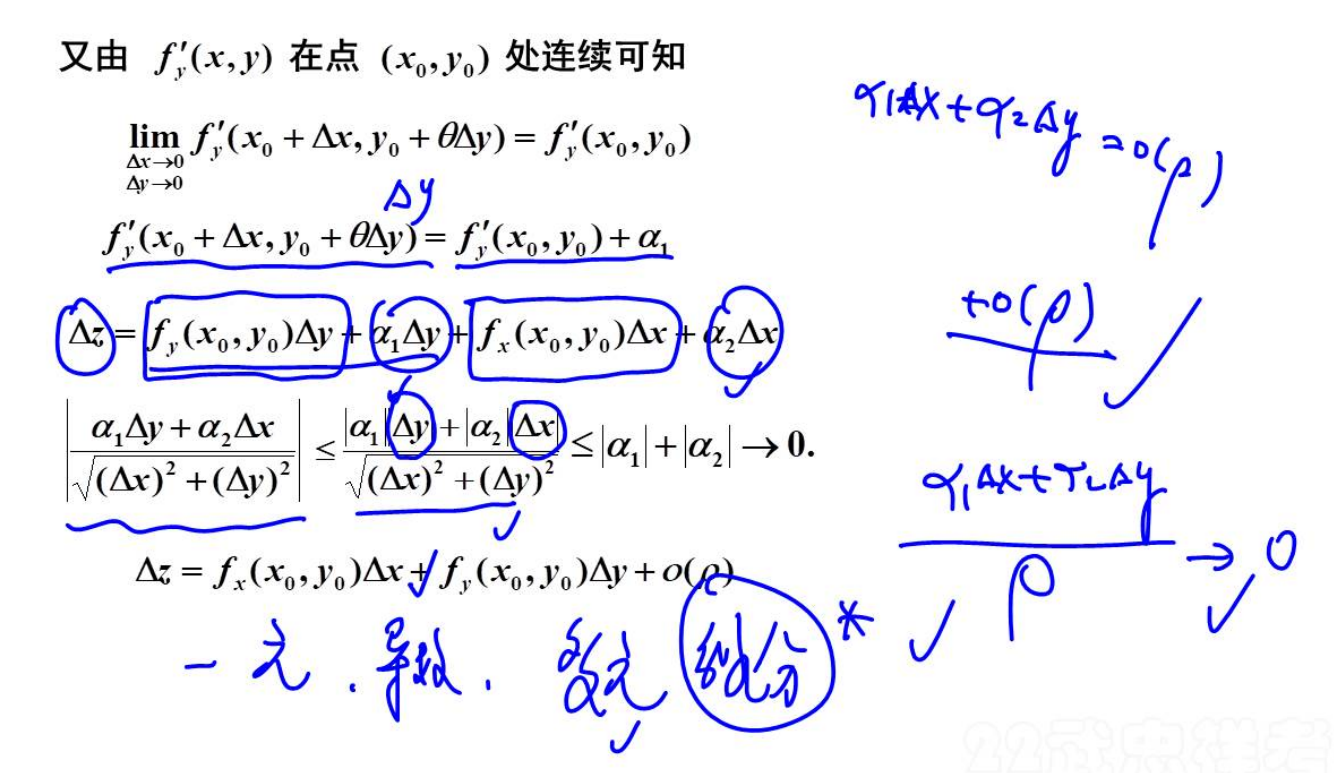 又由 f′y(x, y) 在点 (x₀, y₀) 处连续可知
lim Δx→0 Δy→0 f′y(x₀ + Δx, y₀ + θΔy) = f′y(x₀, y₀)
Δy
f′y(x₀ + Δx, y₀ + θΔy) = f′y(x₀, y₀) + α₁
Δz = fy(x₀, y₀)Δy + α₁Δy + fx(x₀, y₀)Δx + α₂Δx
|(α₁Δy + α₂Δx)/√((Δx)² + (Δy)²)| ≤ (|α₁||Δy| + |α₂||Δx|)/√((Δx)² + (Δy)²) ≤ |α₁| + |α₂| → 0.
Δz = fx(x₀, y₀)Δx + fy(x₀, y₀)Δy + o(ρ)
一元、导数、多元 微分 *
α₁Δx + α₂Δy = o(ρ)
+o(ρ)
(α₁Δx + α₂Δy)/ρ → 0
22武忠祥考